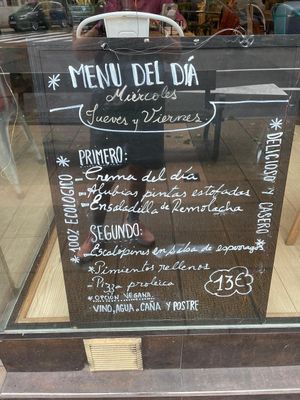 MENU DEL DÍA
Miércoles
Jueves y Viernes
PRIMERO:
- Crema del día
- Alubias pintas estofadas
- Ensaladilla de Remolacha
SEGUNDO:
- Escalopines en salsa de esparragos
* Pimientos rellenos
- Pizza proteica
* OPCIÓN VEGANA
VINO, AGUA, CAÑA Y POSTRE
13€
* 100% ECOLÓGICO *
* DELICIOSO Y CASERO *